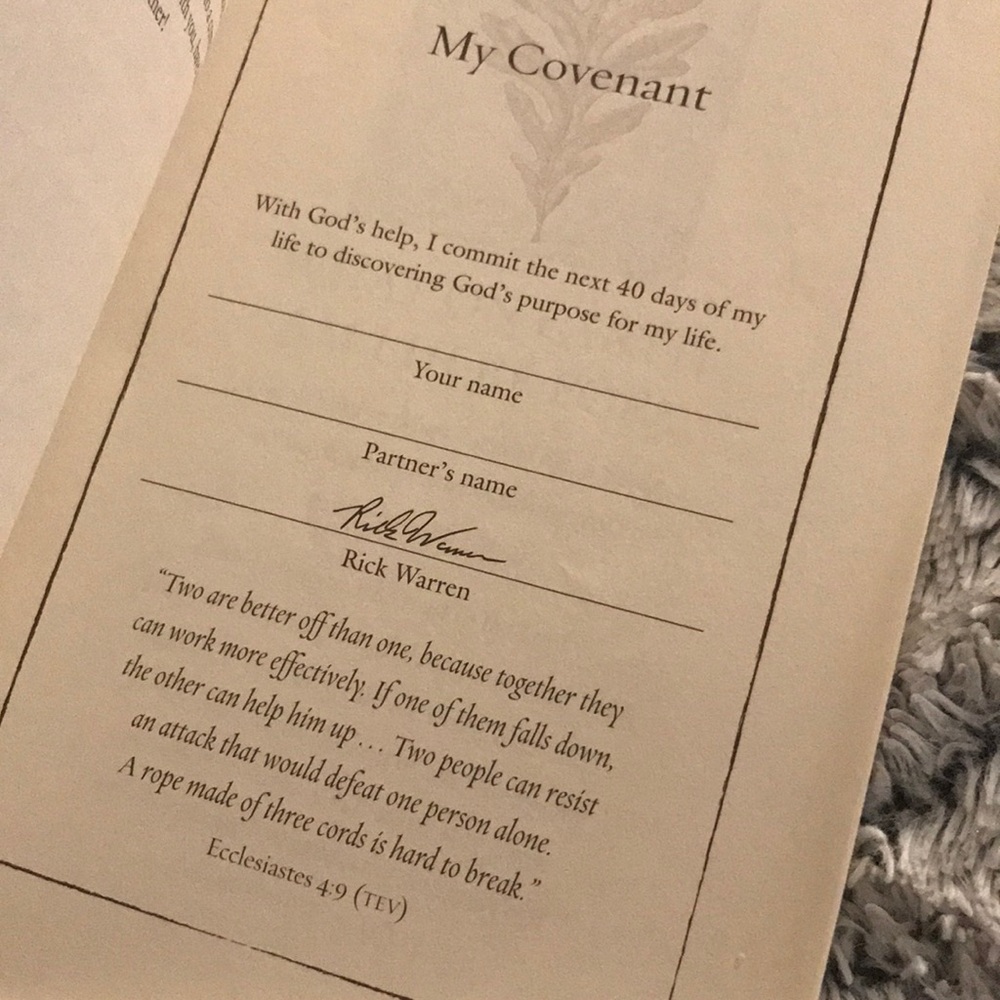 My Covenant
With God's help, I commit the next 40 days of my
life to discovering God's purpose for my life.
Your name
Partner's name
Rick Warren
Rick Warren
"Two are better off than one, because together they
can work more effectively. If one of them falls down,
the other can help him up . . . Two people can resist
an attack that would defeat one person alone.
A rope made of three cords is hard to break."
Ecclesiastes 4:9 (TEV)